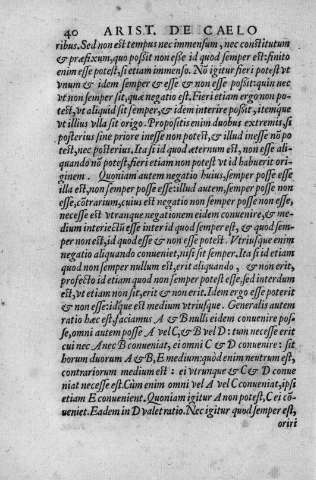 40 ARIST. DE CAELO
ribus. Sed non est tempus nec immensum, nec constitutum
& præfixum, quo possit non esse id quod semper est: finito
enim esse potest, si etiam immenso. Nō igitur fieri potest vt
vnum & idem semper & esse & non esse possit: quin nec
vt non semper sit, quæ negatio est. Fieri etiam ergo non po=
test, vt aliquid sit semper, & idem interire possit, itemque
vt illius vlla sit origo. Propositis enim duobus extremis, si
posterius sine priore inesse non potest, & illud inesse nō po
test, nec posterius. Ita si id quod æternum est, non esse ali=
quando nō potest, fieri etiam non potest vt id habuerit ori
ginem. Quoniam autem negatio huius, semper posse esse
illa est, non semper posse esse: illud autem, semper posse non
esse, cōtrarium, cuius est negatio non semper posse non esse,
necesse est vtranque negationem eidem conuenire, & me=
dium interiectū esse inter id quod semper est, & quod sem-
per non est, id quod esse & non esse potest. Vtriusque enim
negatio aliquando conueniet, nisi sit semper. Ita si id etiam
quod non semper nullum est, erit aliquando, & non erit,
profecto id etiam quod non semper potest esse, sed interdum
est, vt etiam non sit, erit & non erit. Idem ergo esse poterit
& non esse: idque est medium vtriusque. Generalis autem
ratio hæc est, faciamus A & B nulli eidem conuenire pos=
se, omni autem posse A vel C, & B vel D: tum necesse erit
cui nec A nec B conueniat, ei omni C & D conuenire: sit
horum duorum A & B, E medium: quòd enim neutrum est,
contrariorum medium est: ei vtrunque & C & D conue
niat necesse est. Cùm enim omni vel A vel C conueniat, ipsi
etiam E conuenient. Quoniam igitur A non potest, C ei cō=
ueniet. Eadem in D valet ratio. Nec igitur quod semper est,
oriri